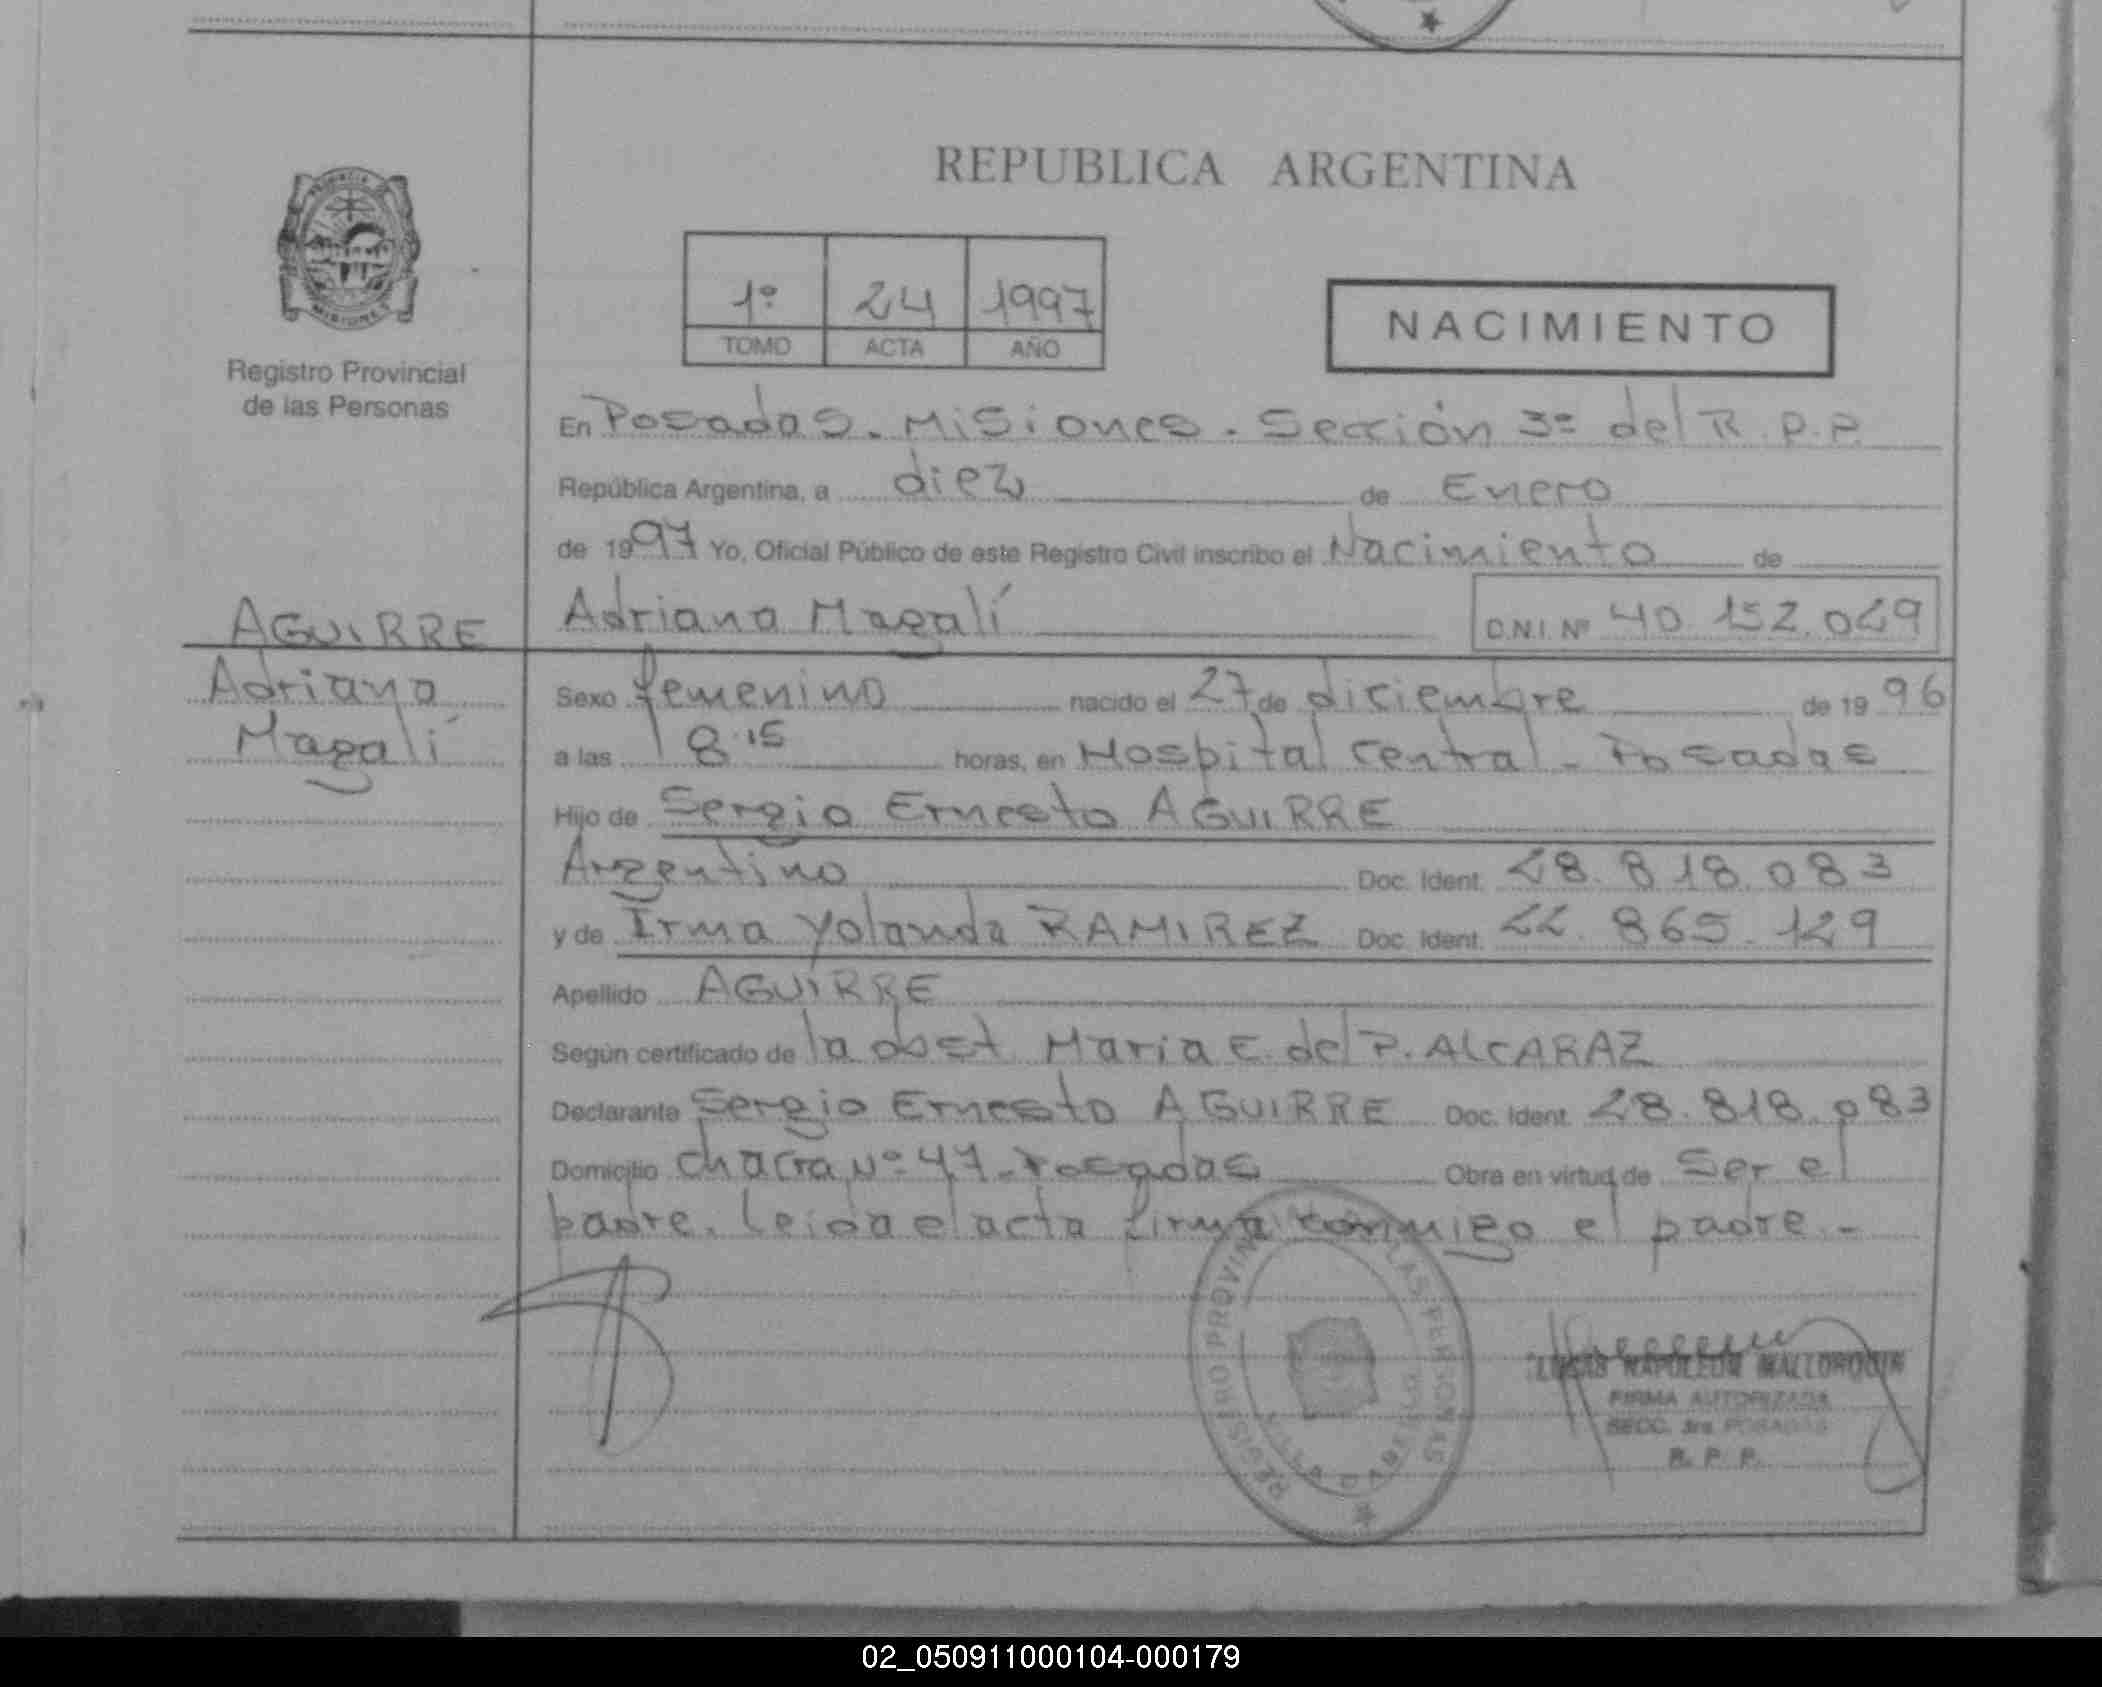 REPUBLICA ARGENTINA
PROVINCIA DE
MISIONES
Registro Provincial
de las Personas
1º 24 1997
TOMO ACTA AÑO
NACIMIENTO
En Posadas. Misiones. Sección 3ª del R.P.P.
República Argentina, a diez de Enero
de 1997 Yo, Oficial Público de este Registro Civil inscribo el Nacimiento de
AGUIRRE
Adriana
Magalí
Adriana Magalí D.N.I. Nº 40.152.029
Sexo femenino nacido el 27 de diciembre de 1996
a las 8.15 horas, en Hospital Central - Posadas
Hijo de Sergio Ernesto AGUIRRE
Argentino Doc. Ident. 28.818.083
y de Irma Yolanda RAMIREZ Doc. Ident. 22.865.129
Apellido AGUIRRE
Según certificado de la obst Maria E. del P. ALCARAZ
Declarante Sergio Ernesto AGUIRRE Doc. Ident. 28.818.083
Domicilio chacra Nº 47 - Posadas Obra en virtud de Ser el
padre. Leida el acta firma conmigo el padre.-
REGISTRO PROVINCIAL DE LAS PERSONAS
LUCAS NAPOLEON MALLORQUIN
FIRMA AUTORIZADA
SECC. 3ra POSADAS
R. P. P.
02_050911000104-000179